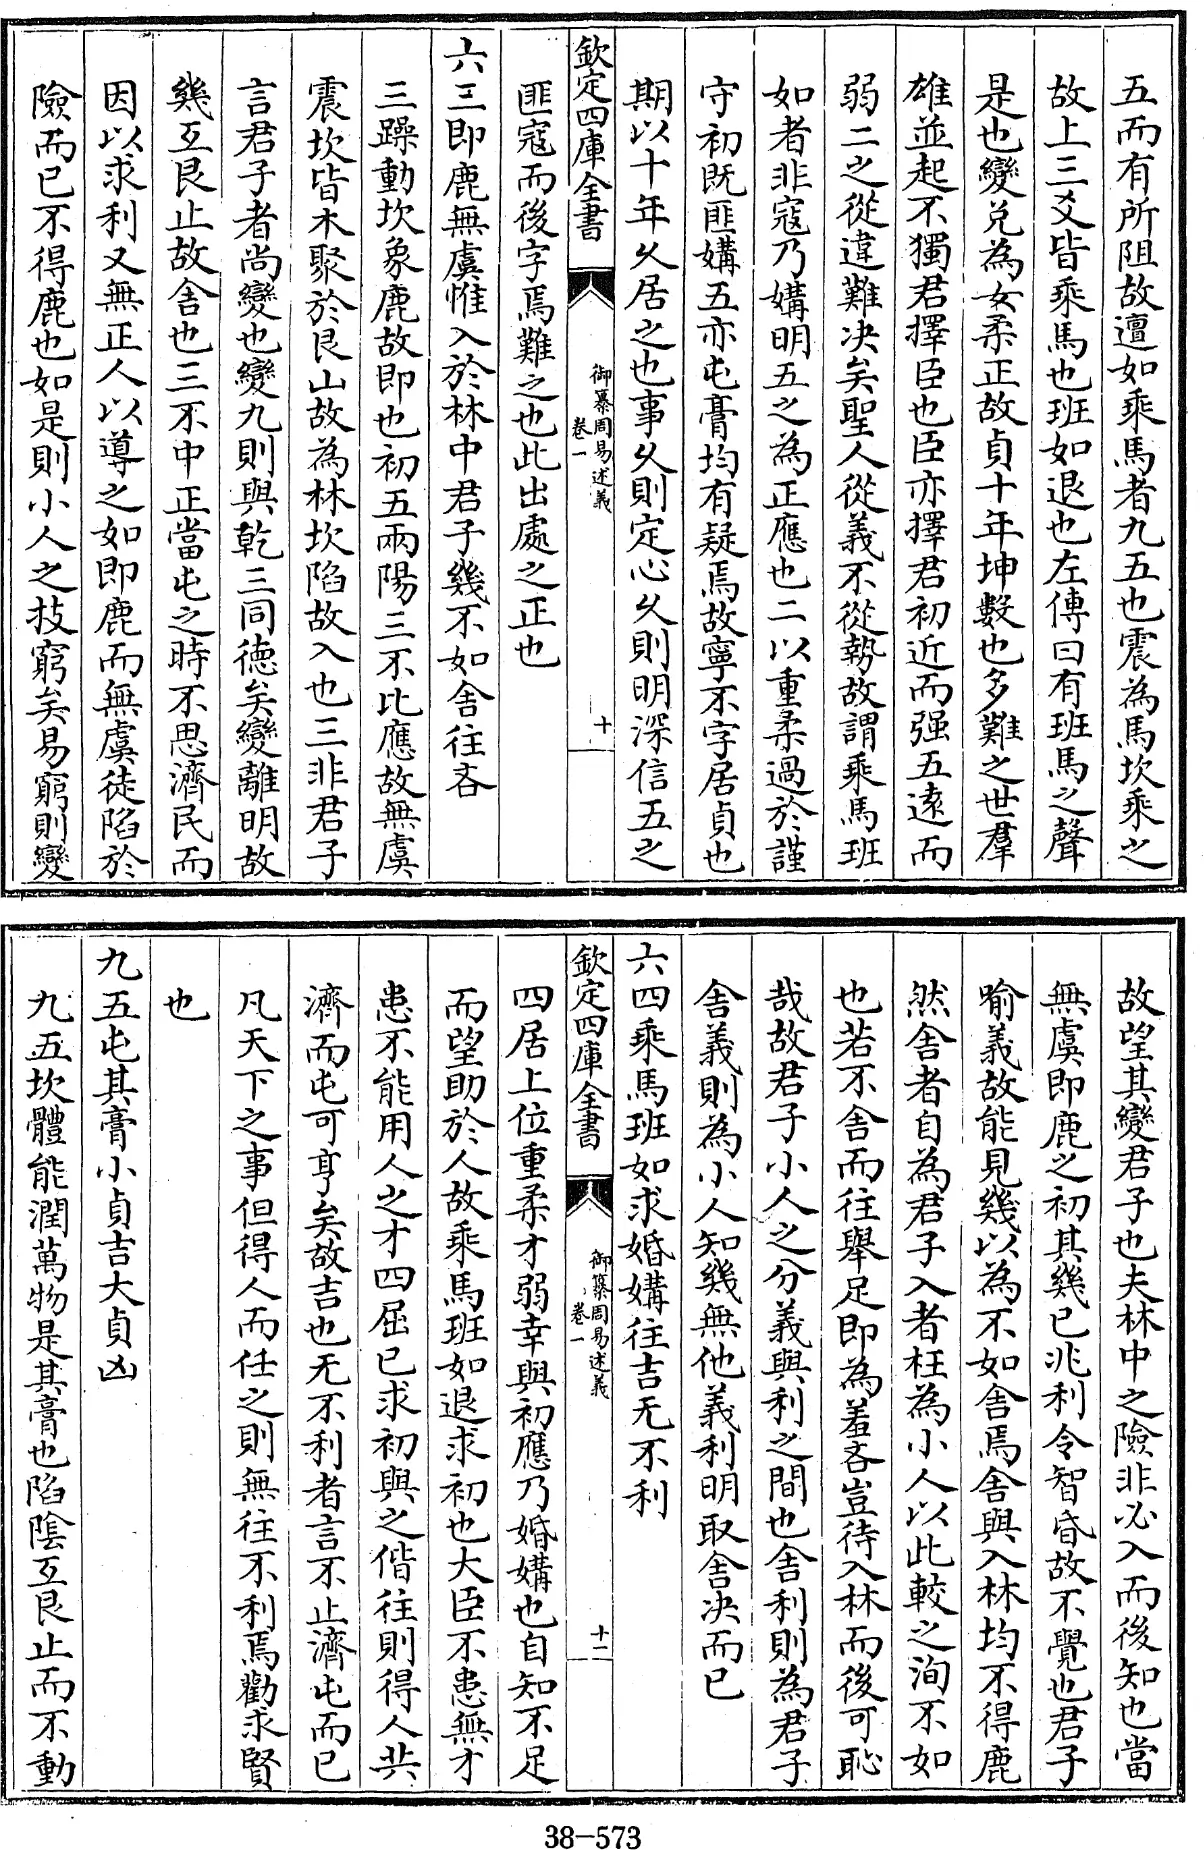 五而有所阻故邅如乘馬者九五也震為馬坎乘之
故上三爻皆乘馬也班如退也左傳曰有班馬之聲
是也變兌為女柔正故貞十年坤數也多難之世羣
雄並起不獨君擇臣也臣亦擇君初近而强五遠而
弱二之從違難决矣聖人從義不從勢故謂乘馬班
如者非寇乃媾明五之為正應也二以重柔過於謹
守初既匪媾五亦屯膏均有疑焉故寧不字居貞也
期以十年久居之也事久則定心久則明深信五之
欽定四庫全書
御纂周易述義
卷一
十
匪寇而後字焉難之也此出處之正也
六三即鹿無虞惟入於林中君子幾不如舍往吝
三躁動坎象鹿故即也初五兩陽三不比應故無虞
震坎皆木聚於艮山故為林坎陷故入也三非君子
言君子者尚變也變九則與乾三同德矣變離明故
幾互艮止故舍也三不中正當屯之時不思濟民而
因以求利又無正人以導之如即鹿而無虞徒陷於
險而已不得鹿也如是則小人之技窮矣易窮則變
故望其變君子也夫林中之險非必入而後知也當
無虞即鹿之初其幾已兆利令智昏故不覺也君子
喻義故能見幾以為不如舍焉舍與入林均不得鹿
然舍者自為君子入者枉為小人以此較之洵不如
也若不舍而往舉足即為羞吝豈待入林而後可恥
哉故君子小人之分義與利之間也舍利則為君子
舍義則為小人知幾無他義利明取舍决而已
六四乘馬班如求婚媾往吉无不利
欽定四庫全書
御纂周易述義
卷一
十一
四居上位重柔才弱幸與初應乃婚媾也自知不足
而望助於人故乘馬班如退求初也大臣不患無才
患不能用人之才四屈已求初與之偕往則得人共
濟而屯可亨矣故吉也无不利者言不止濟屯而已
凡天下之事但得人而任之則無往不利焉勸求賢
也
九五屯其膏小貞吉大貞凶
九五坎體能潤萬物是其膏也陷陰互艮止而不動
38-573